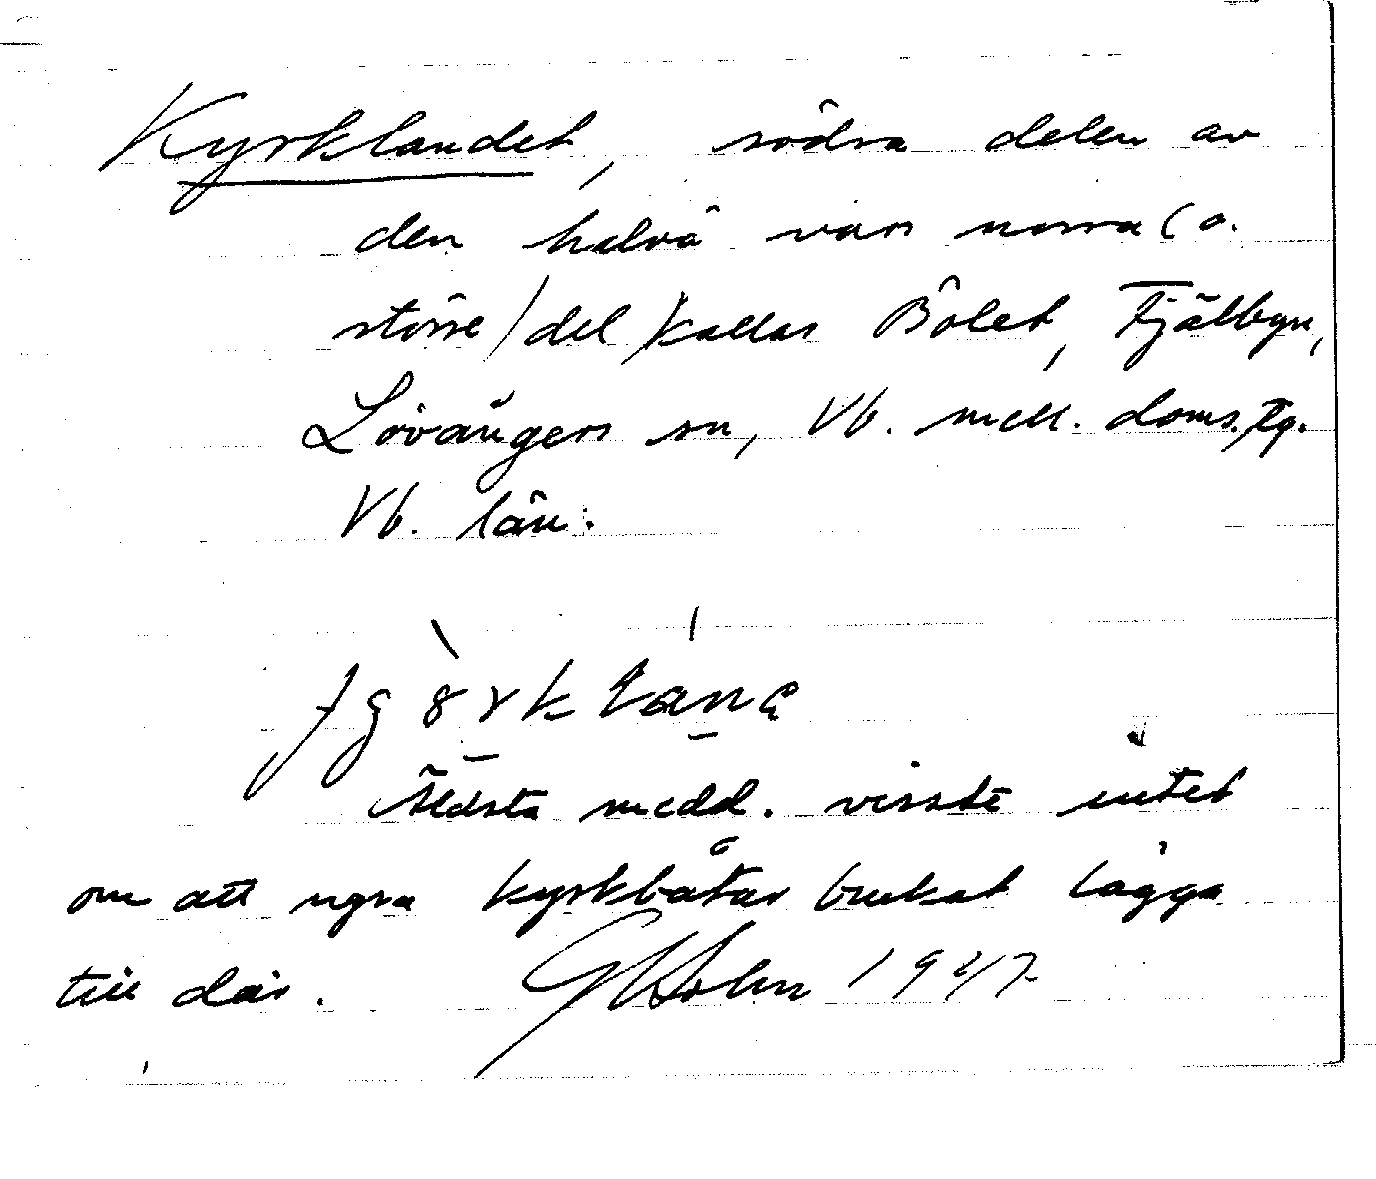 Kyrklandet, södra delen av
den halvö vars norra (o.
större) del kallas Bölet, Fjälbyn,
Lövångers sn, Vb. mell. doms.tg.
Vb. län.
Äldsta medd. visste intet
om att ngra kyrkbåtar brukat lägga
till där. Holm 1947